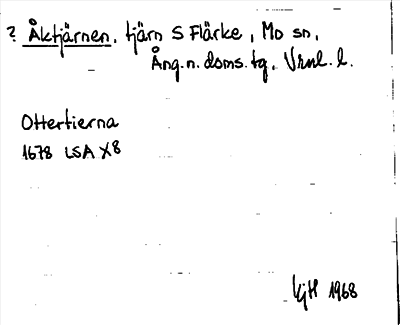 ? Åktjärnen, tjärn S Flärke, Mo sn,
Ång. n. doms. tg, Vrnl. l.
Ottertierna
1678 LSA X8
KjH 1968